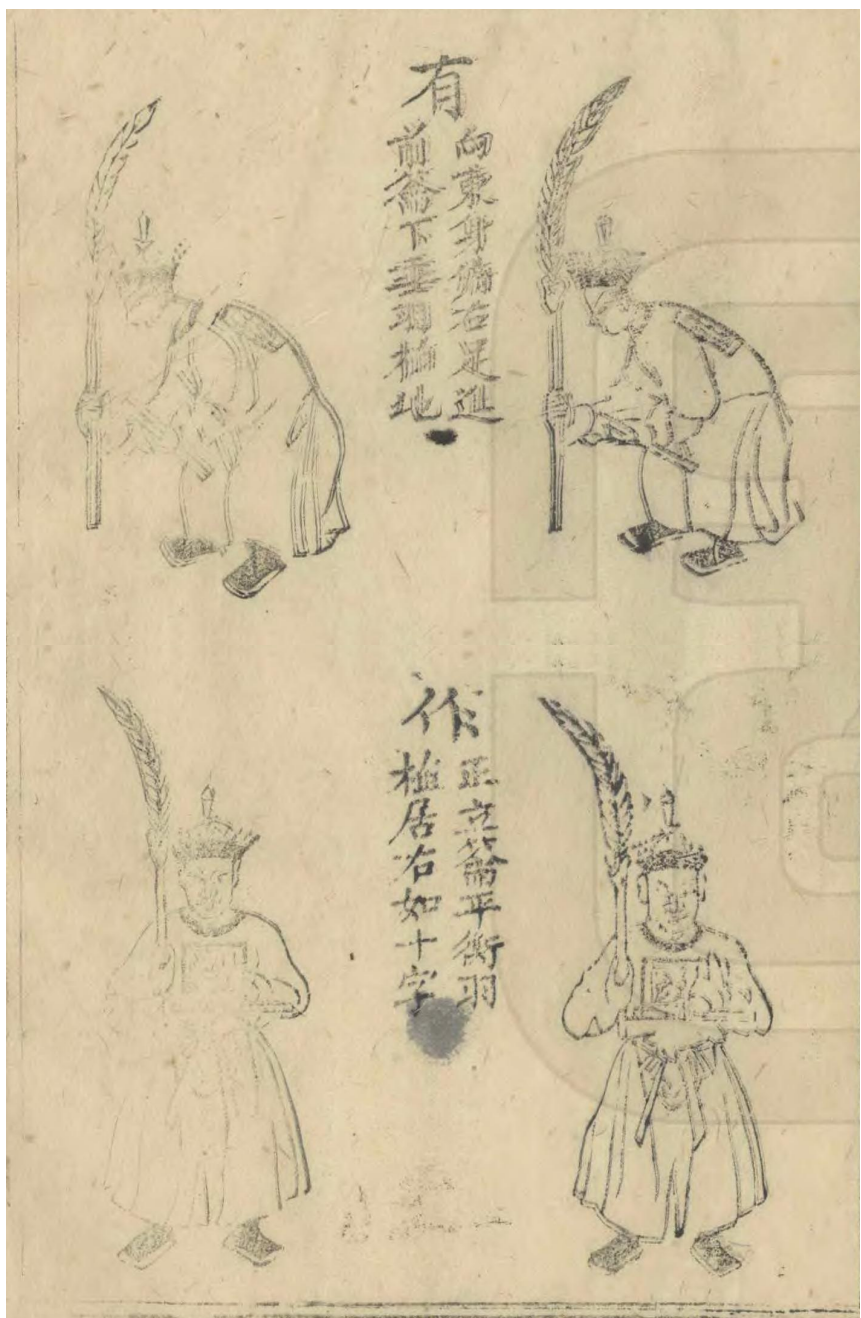 有
向東身俯右足進
前籥下垂羽植地
作
正立籥平衡羽
植居右如十字